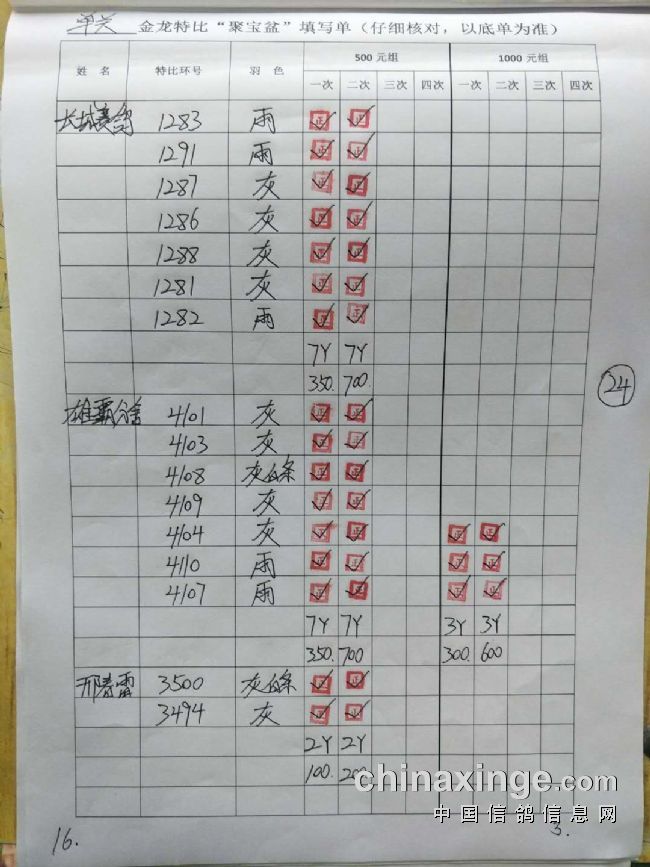 单关 金龙特比“聚宝盆”填写单（仔细核对，以底单为准）
姓 名 特比环号 羽 色 500 元组 1000 元组
一次 二次 三次 四次 一次 二次 三次 四次
长城赛鸽 1283 雨 正 正
1291 雨 正 正
1287 灰 正 正
1286 灰 正 正
1288 灰 正 正
1281 灰 正 正
1282 雨 正 正
7Y 7Y
350. 700.
24
雄霸鸽舍 4101 灰 正 正
4103 灰 正 正
4108 灰白条 正 正
4109 灰 正 正
4104 灰 正 正 正 正
4110 雨 正 正 正 正
4107 雨 正 正 正 正
7Y 7Y 3Y 3Y
350. 700 300. 600
邢春雷 3500 灰白条 正 正
3494 灰 正 正
2Y 2Y
100. 200
chinaxinge.com
中国信鸽信息网
16. 3.